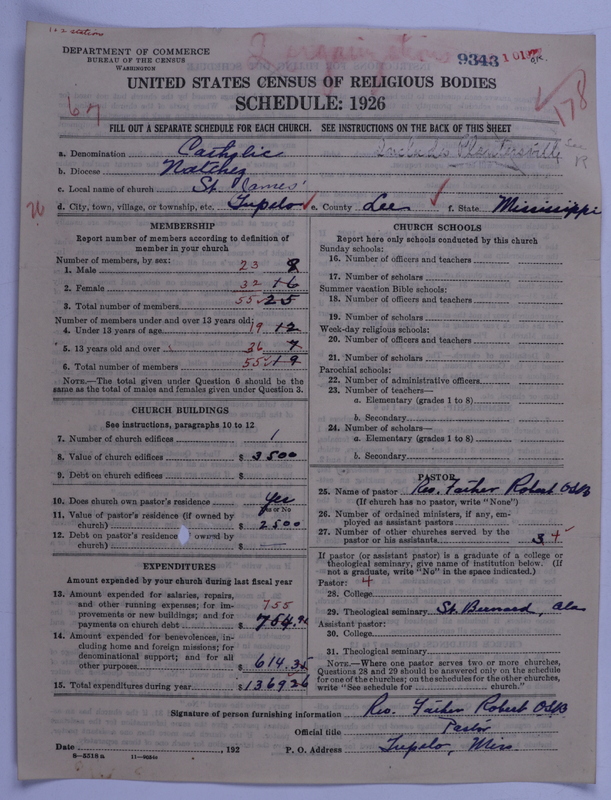 1 & 2 stations
DEPARTMENT OF COMMERCE
BUREAU OF THE CENSUS
WASHINGTON
9343
UNITED STATES CENSUS OF RELIGIOUS BODIES
SCHEDULE: 1926
67
178
FILL OUT A SEPARATE SCHEDULE FOR EACH CHURCH. SEE INSTRUCTIONS ON THE BACK OF THIS SHEET
a. Denomination Catholic Includes Plantersville
b. Diocese Natchez
c. Local name of church St. James'
d. City, town, village, or township, etc. Tupelo e. County Lee f. State Mississippi
MEMBERSHIP
Report number of members according to definition of
member in your church
Number of members, by sex:
1. Male 23 8
2. Female 32 16
3. Total number of members 55 25
Number of members under and over 13 years old:
4. Under 13 years of age 19 12
5. 13 years old and over 36 7
6. Total number of members 55 19
NOTE.—The total given under Question 6 should be
same as the total of males and females given under Question 3.
CHURCH BUILDINGS
See instructions, paragraphs 10 to 12
7. Number of church edifices 1
8. Value of church edifices $ 3500
9. Debt on church edifices $
10. Does church own pastor's residence yes
Yes or No
11. Value of pastor's residence (if owned by
church) $ 2500
12. Debt on pastor's residence owned by
church) $
EXPENDITURES
Amount expended by your church during last fiscal year
13. Amount expended for salaries, repairs,
and other running expenses; for im-
provements or new buildings; and for
payments on church debt $ 755 754.92
14. Amount expended for benevolences, in-
cluding home and foreign missions; for
denominational support; and for all
other purposes $ 614.35
15. Total expenditures during year $ 1369.26
CHURCH SCHOOLS
Report here only schools conducted by this church
Sunday schools:
16. Number of officers and teachers
17. Number of scholars
Summer vacation Bible schools:
18. Number of officers and teachers
19. Number of scholars
Week-day religious schools:
20. Number of officers and teachers
21. Number of scholars
Parochial schools:
22. Number of administrative officers
23. Number of teachers—
a. Elementary (grades 1 to 8)
b. Secondary
24. Number of scholars—
a. Elementary (grades 1 to 8)
b. Secondary
PASTOR
25. Name of pastor Rev. Father Robert O.S.B.
(If church has no pastor, write "None")
26. Number of ordained ministers, if any, em-
ployed as assistant pastors
27. Number of other churches served by the
pastor or his assistants 3 4
If pastor (or assistant pastor) is a graduate of a college or
theological seminary, give name of institution below. (If
not a graduate, write "No" in the space indicated.)
Pastor: 4
28. College
29. Theological seminary St. Bernard, Ala
Assistant pastor:
30. College
31. Theological seminary
NOTE.—Where one pastor serves two or more churches,
Questions 28 and 29 should be answered only on the schedule
for one of the churches; on the schedules for the other churches,
write "See schedule for church."
Signature of person furnishing information Rev. Father Robert O.S.B.
Official title Pastor
Date , 192 P. O. Address Tupelo, Miss
8—5318a 11—9034a